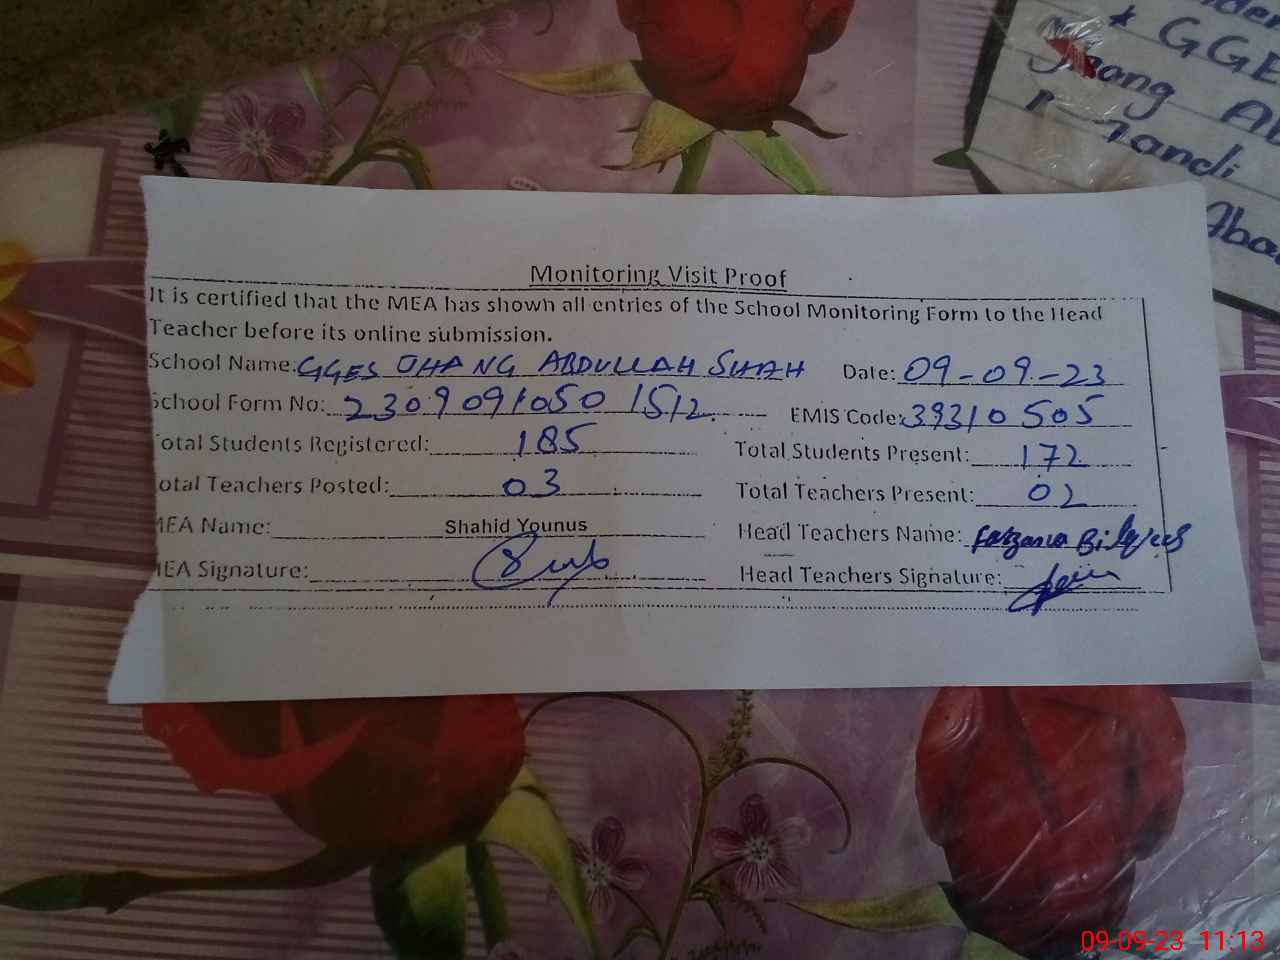 * GGE
Jhang Ab
Tandi
Aba
Monitoring Visit Proof
It is certified that the MEA has shown all entries of the School Monitoring Form to the Head
Teacher before its online submission.
School Name: GGES JHANG ABDULLAH SHAH Date: 09-09-23
School Form No: 23090910501512 EMIS Code: 39310505
otal Students Registered: 185 Total Students Present: 172
otal Teachers Posted: 03 Total Teachers Present: 02
MEA Name: Shahid Younus Head Teachers Name: Farzana Bilqees
MEA Signature: Head Teachers Signature:
09-09-23 11:13